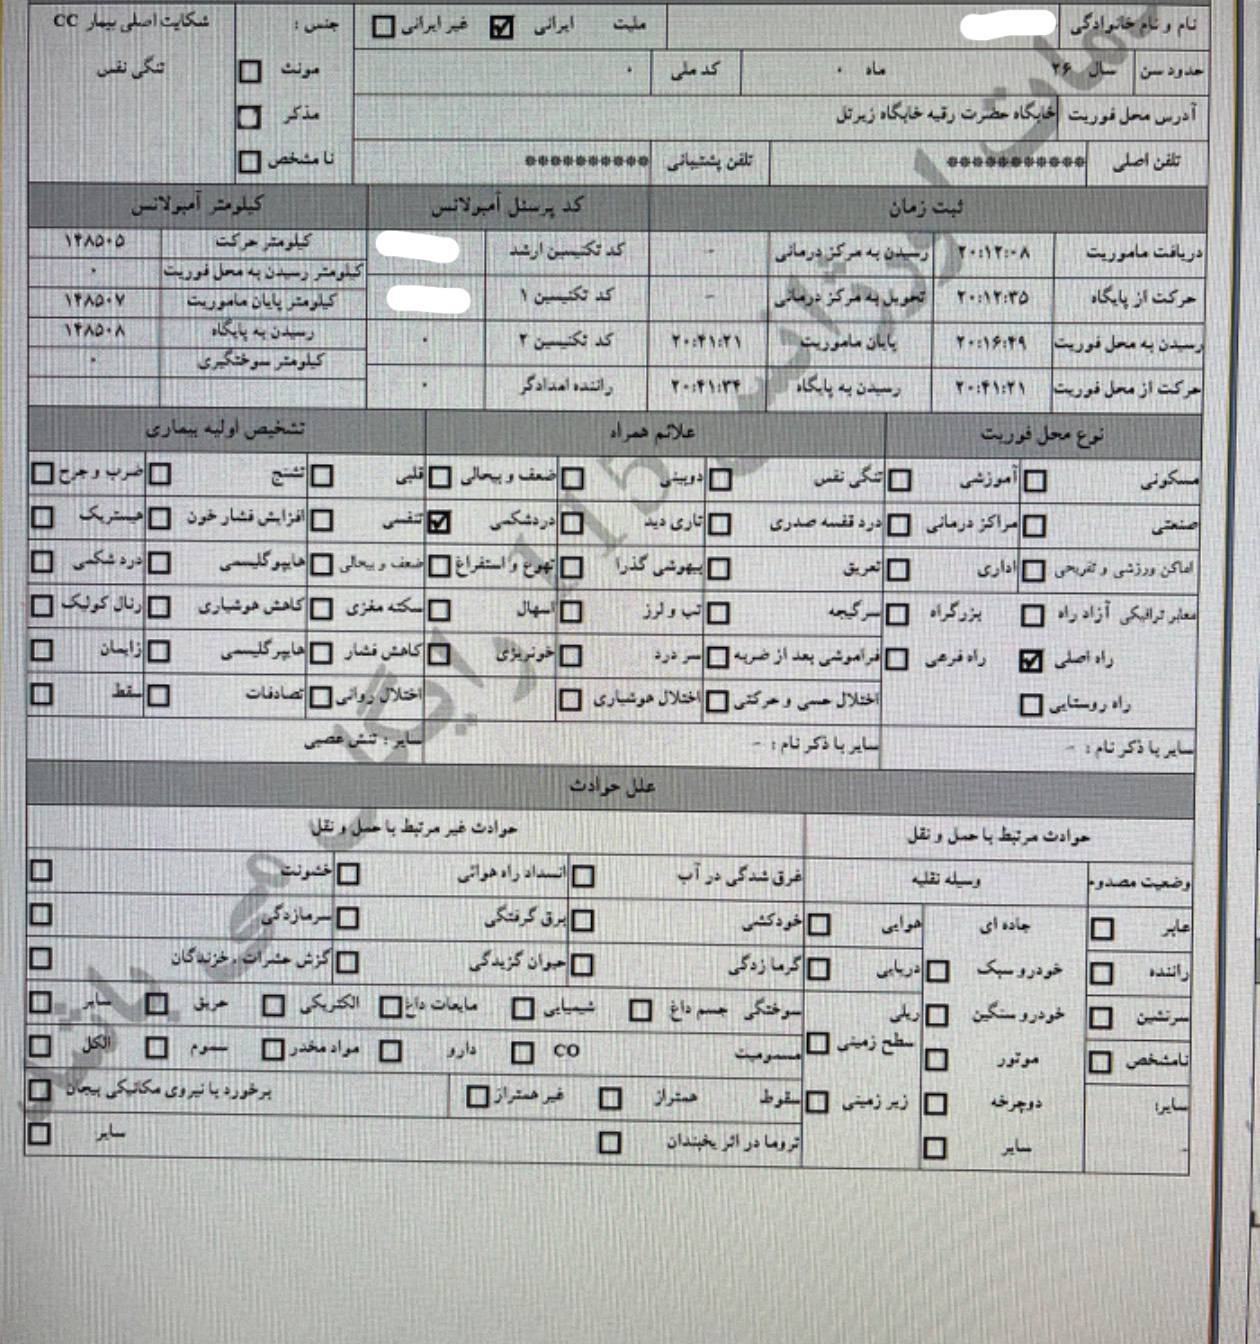 نام و نام خانوادگی ملیت ایرانی غیر ایرانی جنس : شکایت اصلی بیمار CC
حدود سن سال ۲۶ ماه ۰ کد ملی ۰ مونث تنگی نفس
آدرس محل فوریت خابگاه حضرت رقیه خابگاه زیرتل مذکر
تلفن اصلی *********** تلفن پشتیبانی ********** نا مشخص
ثبت زمان کد پرسنل آمبولانس کیلومتر آمبولانس
دریافت ماموریت ۲۰:۱۲:۰۸ رسیدن به مرکز درمانی - کد تکنیسین ارشد کیلومتر حرکت ۱۴۸۵۰۵
کیلومتر رسیدن به محل فوریت ۰
حرکت از پایگاه ۲۰:۱۲:۳۵ تحویل به مرکز درمانی - کد تکنیسین ۱ کیلومتر پایان ماموریت ۱۴۸۵۰۷
رسیدن به محل فوریت ۲۰:۱۶:۴۹ پایان ماموریت ۲۰:۴۱:۲۱ کد تکنیسین ۲ ۰ رسیدن به پایگاه ۱۴۸۵۰۸
کیلومتر سوختگیری ۰
حرکت از محل فوریت ۲۰:۴۱:۲۱ رسیدن به پایگاه ۲۰:۴۱:۳۴ راننده امدادگر ۰
نوع محل فوریت علائم همراه تشخیص اولیه بیماری
مسکونی آموزشی تنگی نفس دوبینی ضعف و بیحالی قلبی تشنج ضرب و جرح
صنعتی مراکز درمانی درد قفسه صدری تاری دید دردشکمی تنفسی افزایش فشار خون هیستریک
اماکن ورزشی و تفریحی اداری تعریق بیهوشی گذرا تهوع و استفراغ ضعف و بیحالی هایپوگلیسمی درد شکمی
معابر ترافیکی آزاد راه بزرگراه سرگیجه تب و لرز اسهال سکته مغزی کاهش هوشیاری رنال کولیک
راه اصلی راه فرعی فراموشی بعد از ضربه سر درد خونریزی کاهش فشار هایپرگلیسمی زایمان
راه روستایی اختلال حسی و حرکتی اختلال هوشیاری اختلال روانی تصادفات سقط
سایر با ذکر نام : - سایر با ذکر نام : - سایر : تنش عصبی
علل حوادث
حوادث مرتبط با حمل و نقل حوادث غیر مرتبط با حمل و نقل
وضعیت مصدوم وسیله نقلیه غرق شدگی در آب انسداد راه هوائی خشونت
عابر جاده ای هوایی خودکشی برق گرفتگی سرمازدگی
راننده خودرو سبک دریایی گرما زدگی حیوان گزیدگی گزش حشرات ، خزندگان
سرنشین خودرو سنگین ریلی سوختگی جسم داغ شیمیایی مایعات داغ الکتریکی حریق سایر
نامشخص موتور سطح زمینی مسمومیت CO دارو مواد مخدر سموم الکل
سایر: دوچرخه زیر زمینی سقوط همتراز غیر همتراز برخورد با نیروی مکانیکی بیجان
- سایر تروما در اثر یخبندان سایر
خدمات اورژانس 115 رایگان می باشد